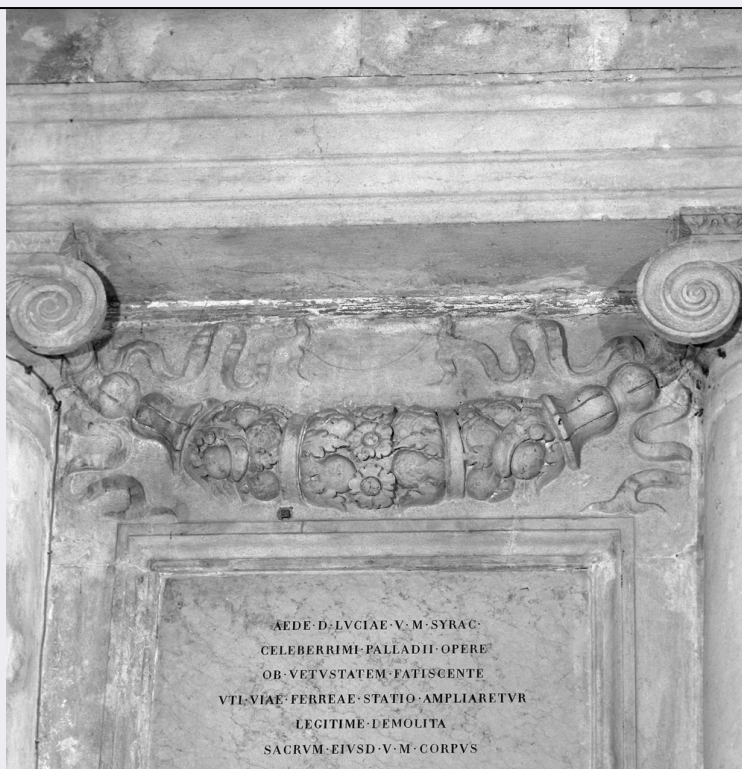 AEDE·D·LVCIAE·V·M·SYRAC·
CELEBERRIMI·PALLADII·OPERE
OB·VETVSTATEM·FATISCENTE
VTI·VIAE·FERREAE·STATIO·AMPLIARETVR
LEGITIME·DEMOLITA
SACRVM·EIVSD·V·M·CORPVS